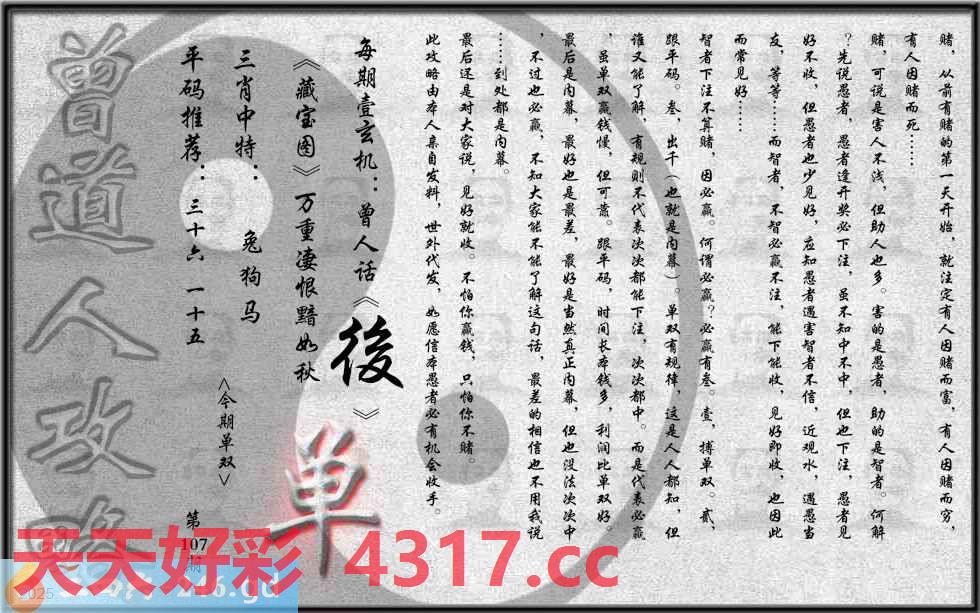 赌，从前有赌的第一天开始，就注定有人因赌而富，有人因赌而穷，
有人因赌而死……
赌，可说是害人不浅，但助人也多。害的是愚者，助的是智者。何解
？先说愚者，愚者逢开奖必下注，虽不知中不中，但也下注，愚者见
好不收，但愚者也少见好，应知愚者遇害智者不信，近观水，遇愚当
友，等等……而智者，不智必赢不注，能下能收，见好即收，也因此
而常见好……
智者下注不算赌，因必赢。何谓必赢？必赢有叁。壹，搏单双。贰，
跟平码。叁，出千（也就是内幕）。单双有规律，这是人人都知，但
谁又能了解，有规则不代表次次都能下注，次次都中。而是代表必赢
，虽单双赢钱慢，但可靠。跟平码，时间长本钱多，利润比单双好。
最后是内幕，最好也是最差，最好是当然真正内幕，但也没法次次中
，不过也必赢，不知大家能不能了解这句话，最差的相信也不用我说
……到处都是内幕。
最后还是对大家说，见好就收。不怕你赢钱，只怕你不赌。
此攻略由本人亲自发料，世外代发，如愿信本愚者必有机会收手。
每期壹玄机：曾人话《後》
《藏宝图》万重凄恨黯如秋
三肖中特：兔狗马
平码推荐：三十六 一十五
<今期单双>
单
曾道人攻略
第
107
期
天天好彩 4317.cc
2025
246.gd